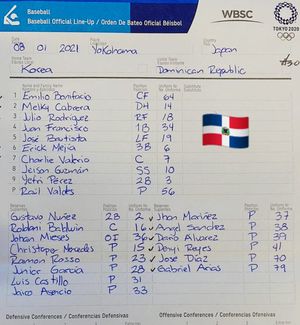 Baseball
Baseball Official Line-Up / Orden De Bateo Oficial Béisbol
WBSC
TOKYO 2020
08 01 2021 Yokohama Japan
#30
Korea Dominican Republic
1 Emilio Bonifacio CF 64
2 Melky Cabrera DH 14
3 Julio Rodriguez RF 18
4 Juan Francisco 1B 34
5 José Bautista LF 19
6 Erick Mejia 3B 6
7 Charlie Valerio C 7
8 Jeison Guzmán SS 10
9 Yefri Pérez 2B 3
P Raúl Valdés P 56
Gustavo Nuñez 2B 2 Jhan Mariñez P 37
Roldani Baldwin C 16 Angel Sanchez P 38
Johan Mieses OF 36 Dario Alvarez P 39
Christopher Mercedes P 15 Denyi Reyes P 41
Ramon Rosso P 23 José Díaz P 70
Junior García P 28 Gabriel Arias P 79
Luis Castillo P 31
Jairo Asencio P 33
Defensive Conferences / Conferencias Defensivas Offensive Conferences / Conferencias Ofensivas